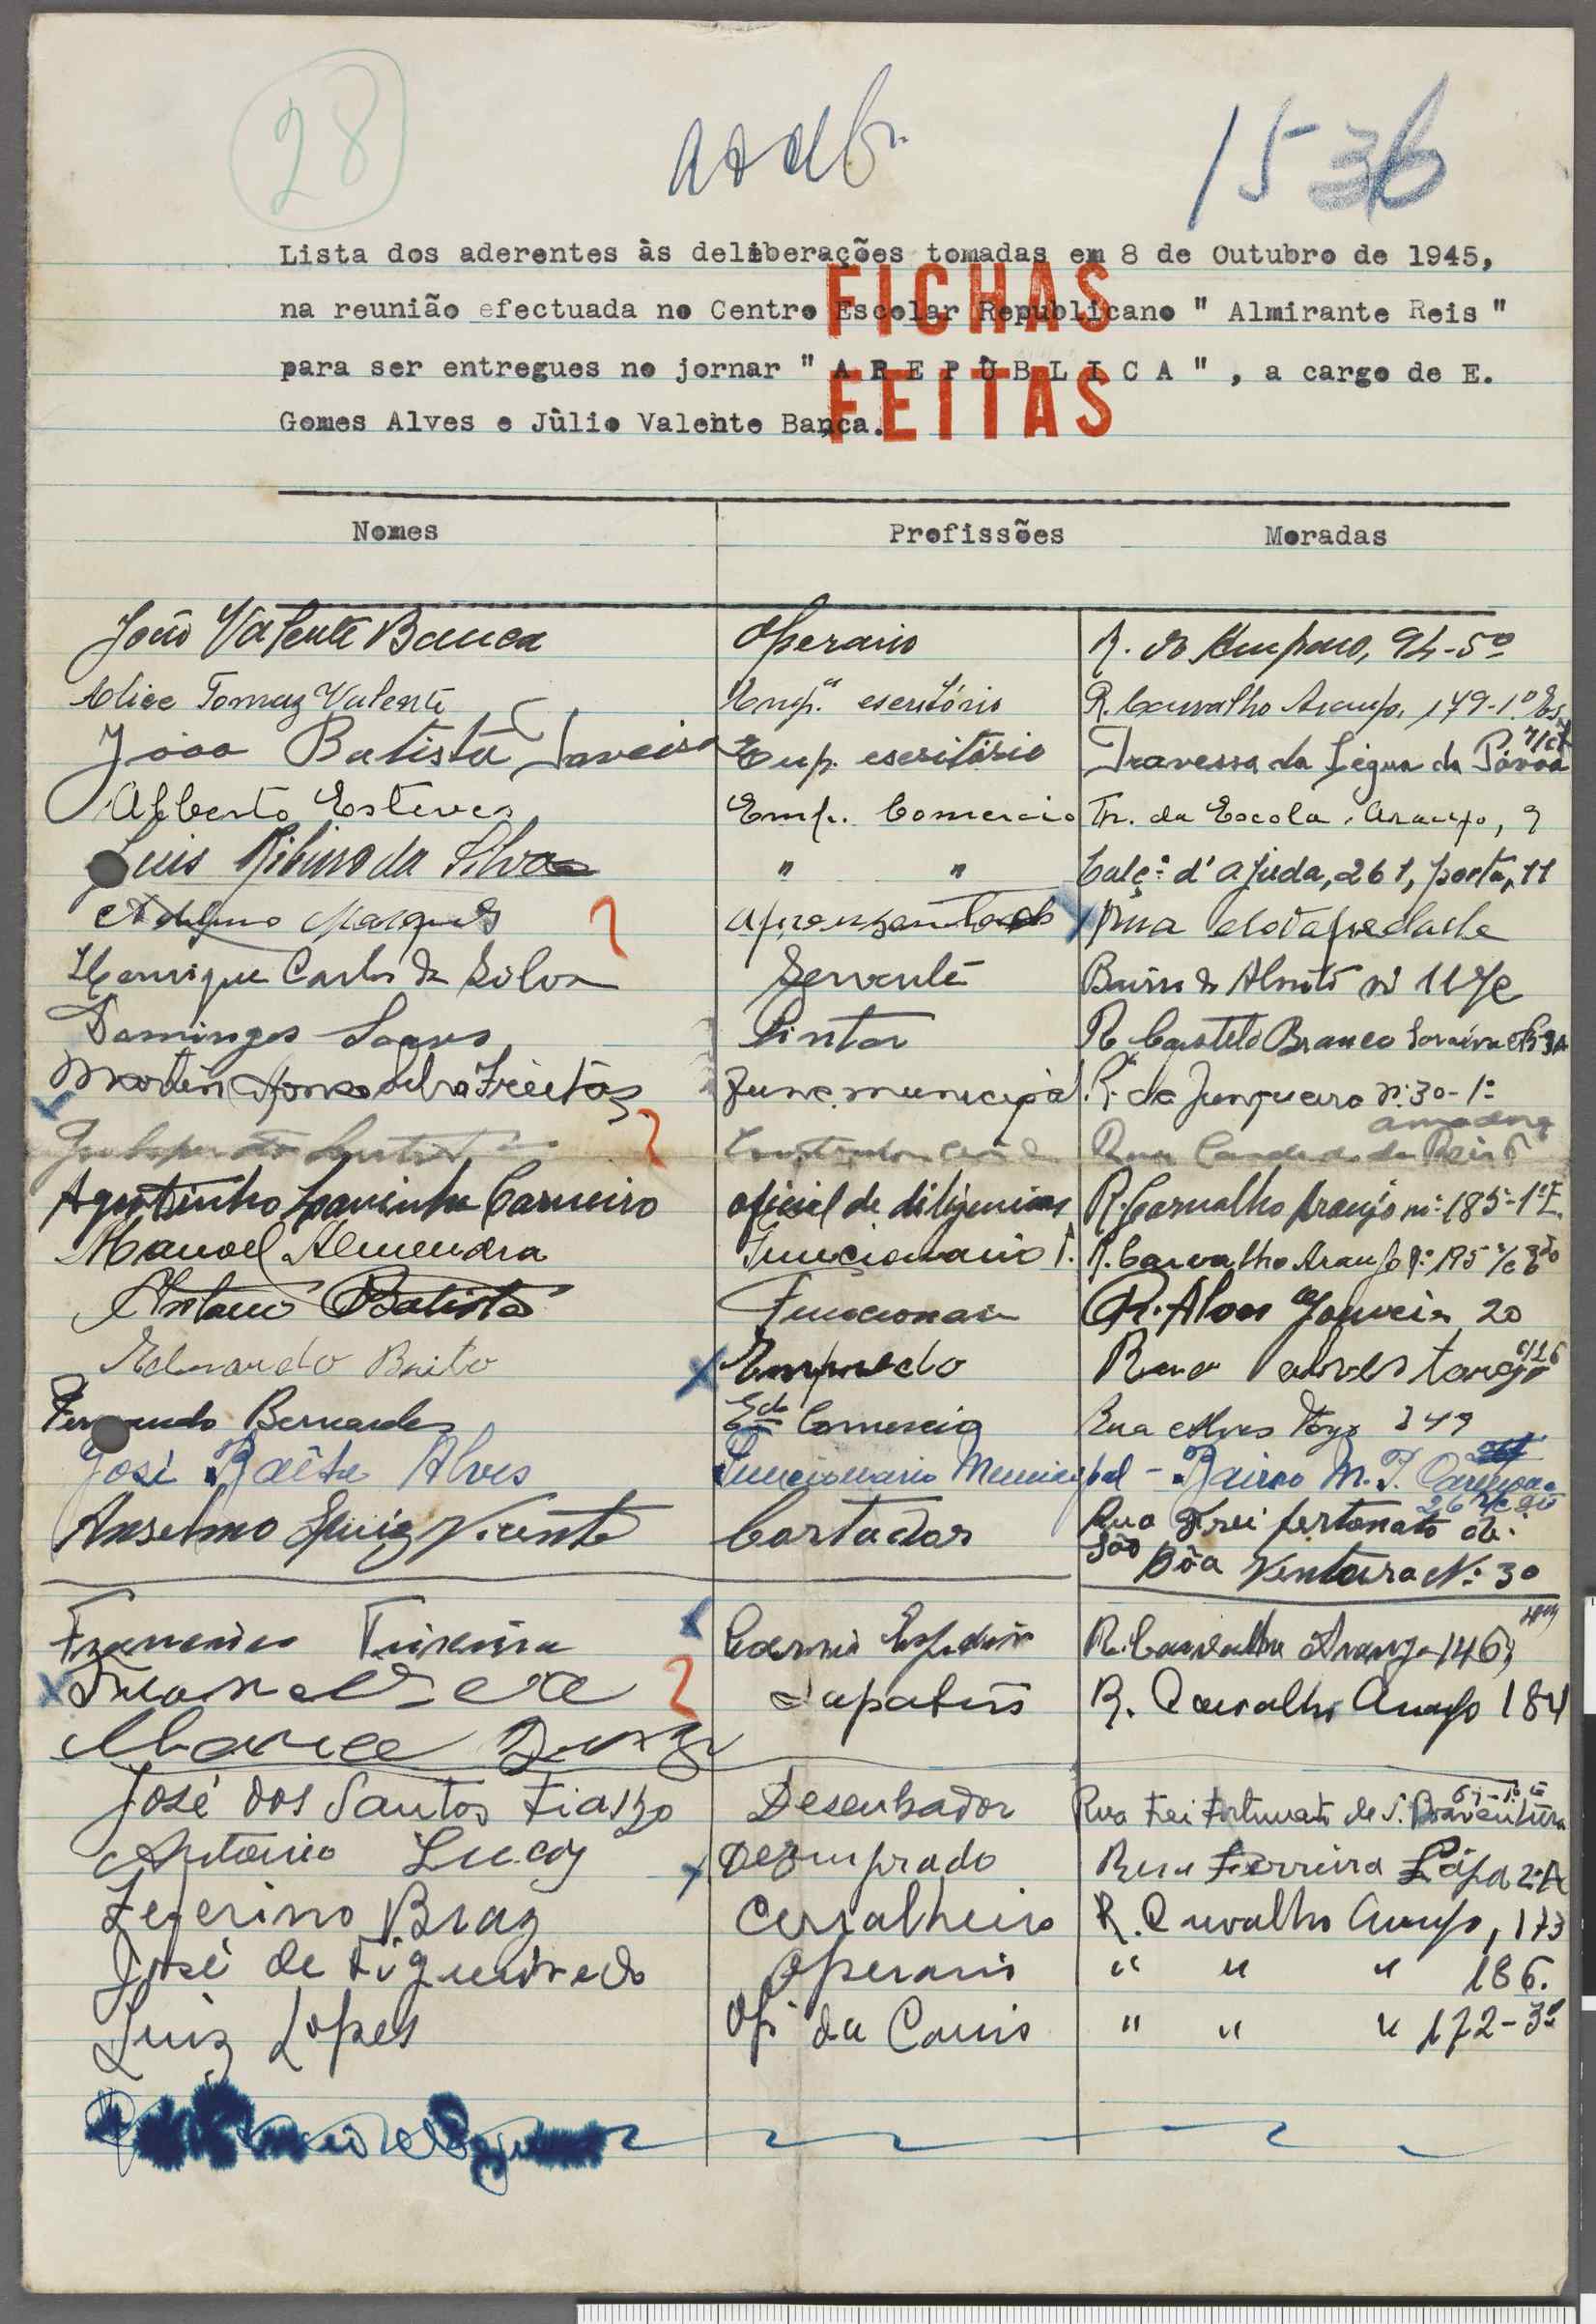 28
1536
Lista dos aderentes às deliberações tomadas em 8 de Outubro de 1945,
na reunião efectuada no Centro Escolar Republicano " Almirante Reis "
para ser entregues no jornar " A R E P Ù B L I C A " , a cargo de E.
Gomes Alves e Jùlio Valente Bança.
FICHAS
FEITAS
Nomes Profissões Moradas
João Valente Banca Operario R. do 94-5º
Alice Tomaz Valente Emp.ª escritório R. Carvalho Araujo, 179-1.º Esq
João Batista Taveira Emp. escritório Travessa da Légua da Póvoa r/c
Alberto Esteves Emp. Comercio Tr. da Escola Araujo, 9
Luis Ribeiro da Silva " " Calç.ª d'Ajuda, 261, porta, 11
Adelino Marques Rua
Henrique Carlos da Silva Servente Bairro de nº 11 r/c
Domingos Soares Pintor R Castelo Branco Saraiva
Afonso Freitas Func. municipal R. da Junqueira nº 30-1º
Rua Candido dos Reis Amadora
Agostinho Carneiro oficial de diligencias R. Carvalho Araujo nº 185-1º E.
Manoel Almendra Funcionario P. R. Carvalho Araujo nº 195 r/c
Antonio Batista Funcionario R. Alves Gouveia 20
Eduardo Brito Rua Alves torgo
Fernando Bernardes Edo Comercio Rua Alves Torgo 249
José Alves Funcionario Municipal - Bairro M. P. Carmona
26 r/c
Anselmo Luiz Vicente Cortador Rua Frei fortonato de
São Bôa Ventura Nº 30
Francisco Teixeira R. Carvalho Araujo 146
R. Carvalho Araujo 184
José dos Santos Desenhador Rua Frei Fortunato de S. Boaventura
Antonio Rua Ferreira Lápa 2-A
Zeferino Braz Cerralheiro R. Carvalho Araujo, 173
José de Figueiredo Operario " " " 186.
Luiz Lopes " " " 172-3º